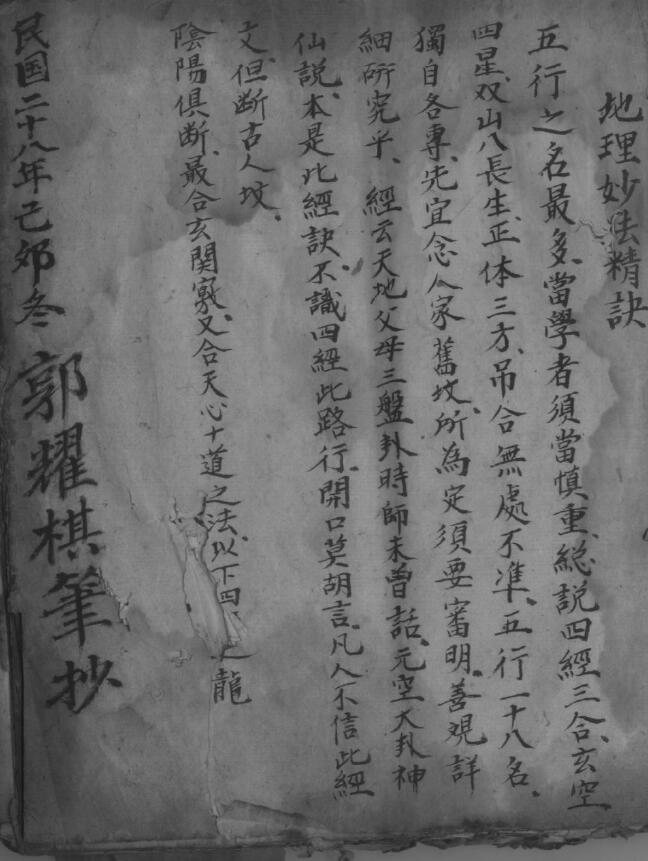 地理妙法精訣
五行之名最多、當學者須當慎重、総説四經三合、玄空
四星、双山八長生、正体三方、吊合無處不準、五行一十八名、
獨自各專、先宜念人家舊坟、所為定須要審明、善观詳
細研究乎、經云天地父母三盤卦時師未曾話、元空大卦神
仙説、本是此經訣、不識四經此路行、開口莫胡言、凡人不信此經
文、但断古人坟、
陰陽俱断、最合玄関竅、又合天心十道之法、以下四之龍
民国二十八年己卯冬 郭耀棋筆抄